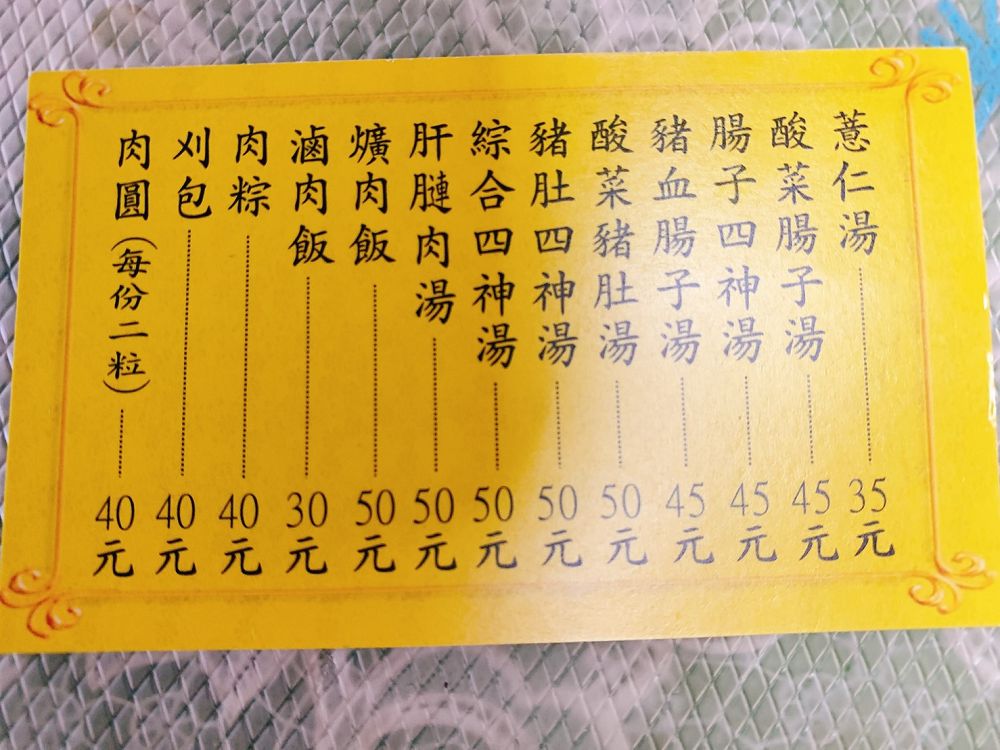 薏仁湯 35元
酸菜腸子湯 45元
腸子四神湯 45元
豬血腸子湯 45元
酸菜豬肚湯 50元
豬肚四神湯 50元
綜合四神湯 50元
肝膁肉湯 50元
爌肉飯 50元
滷肉飯 30元
肉粽 40元
刈包 40元
肉圓(每份二粒) 40元